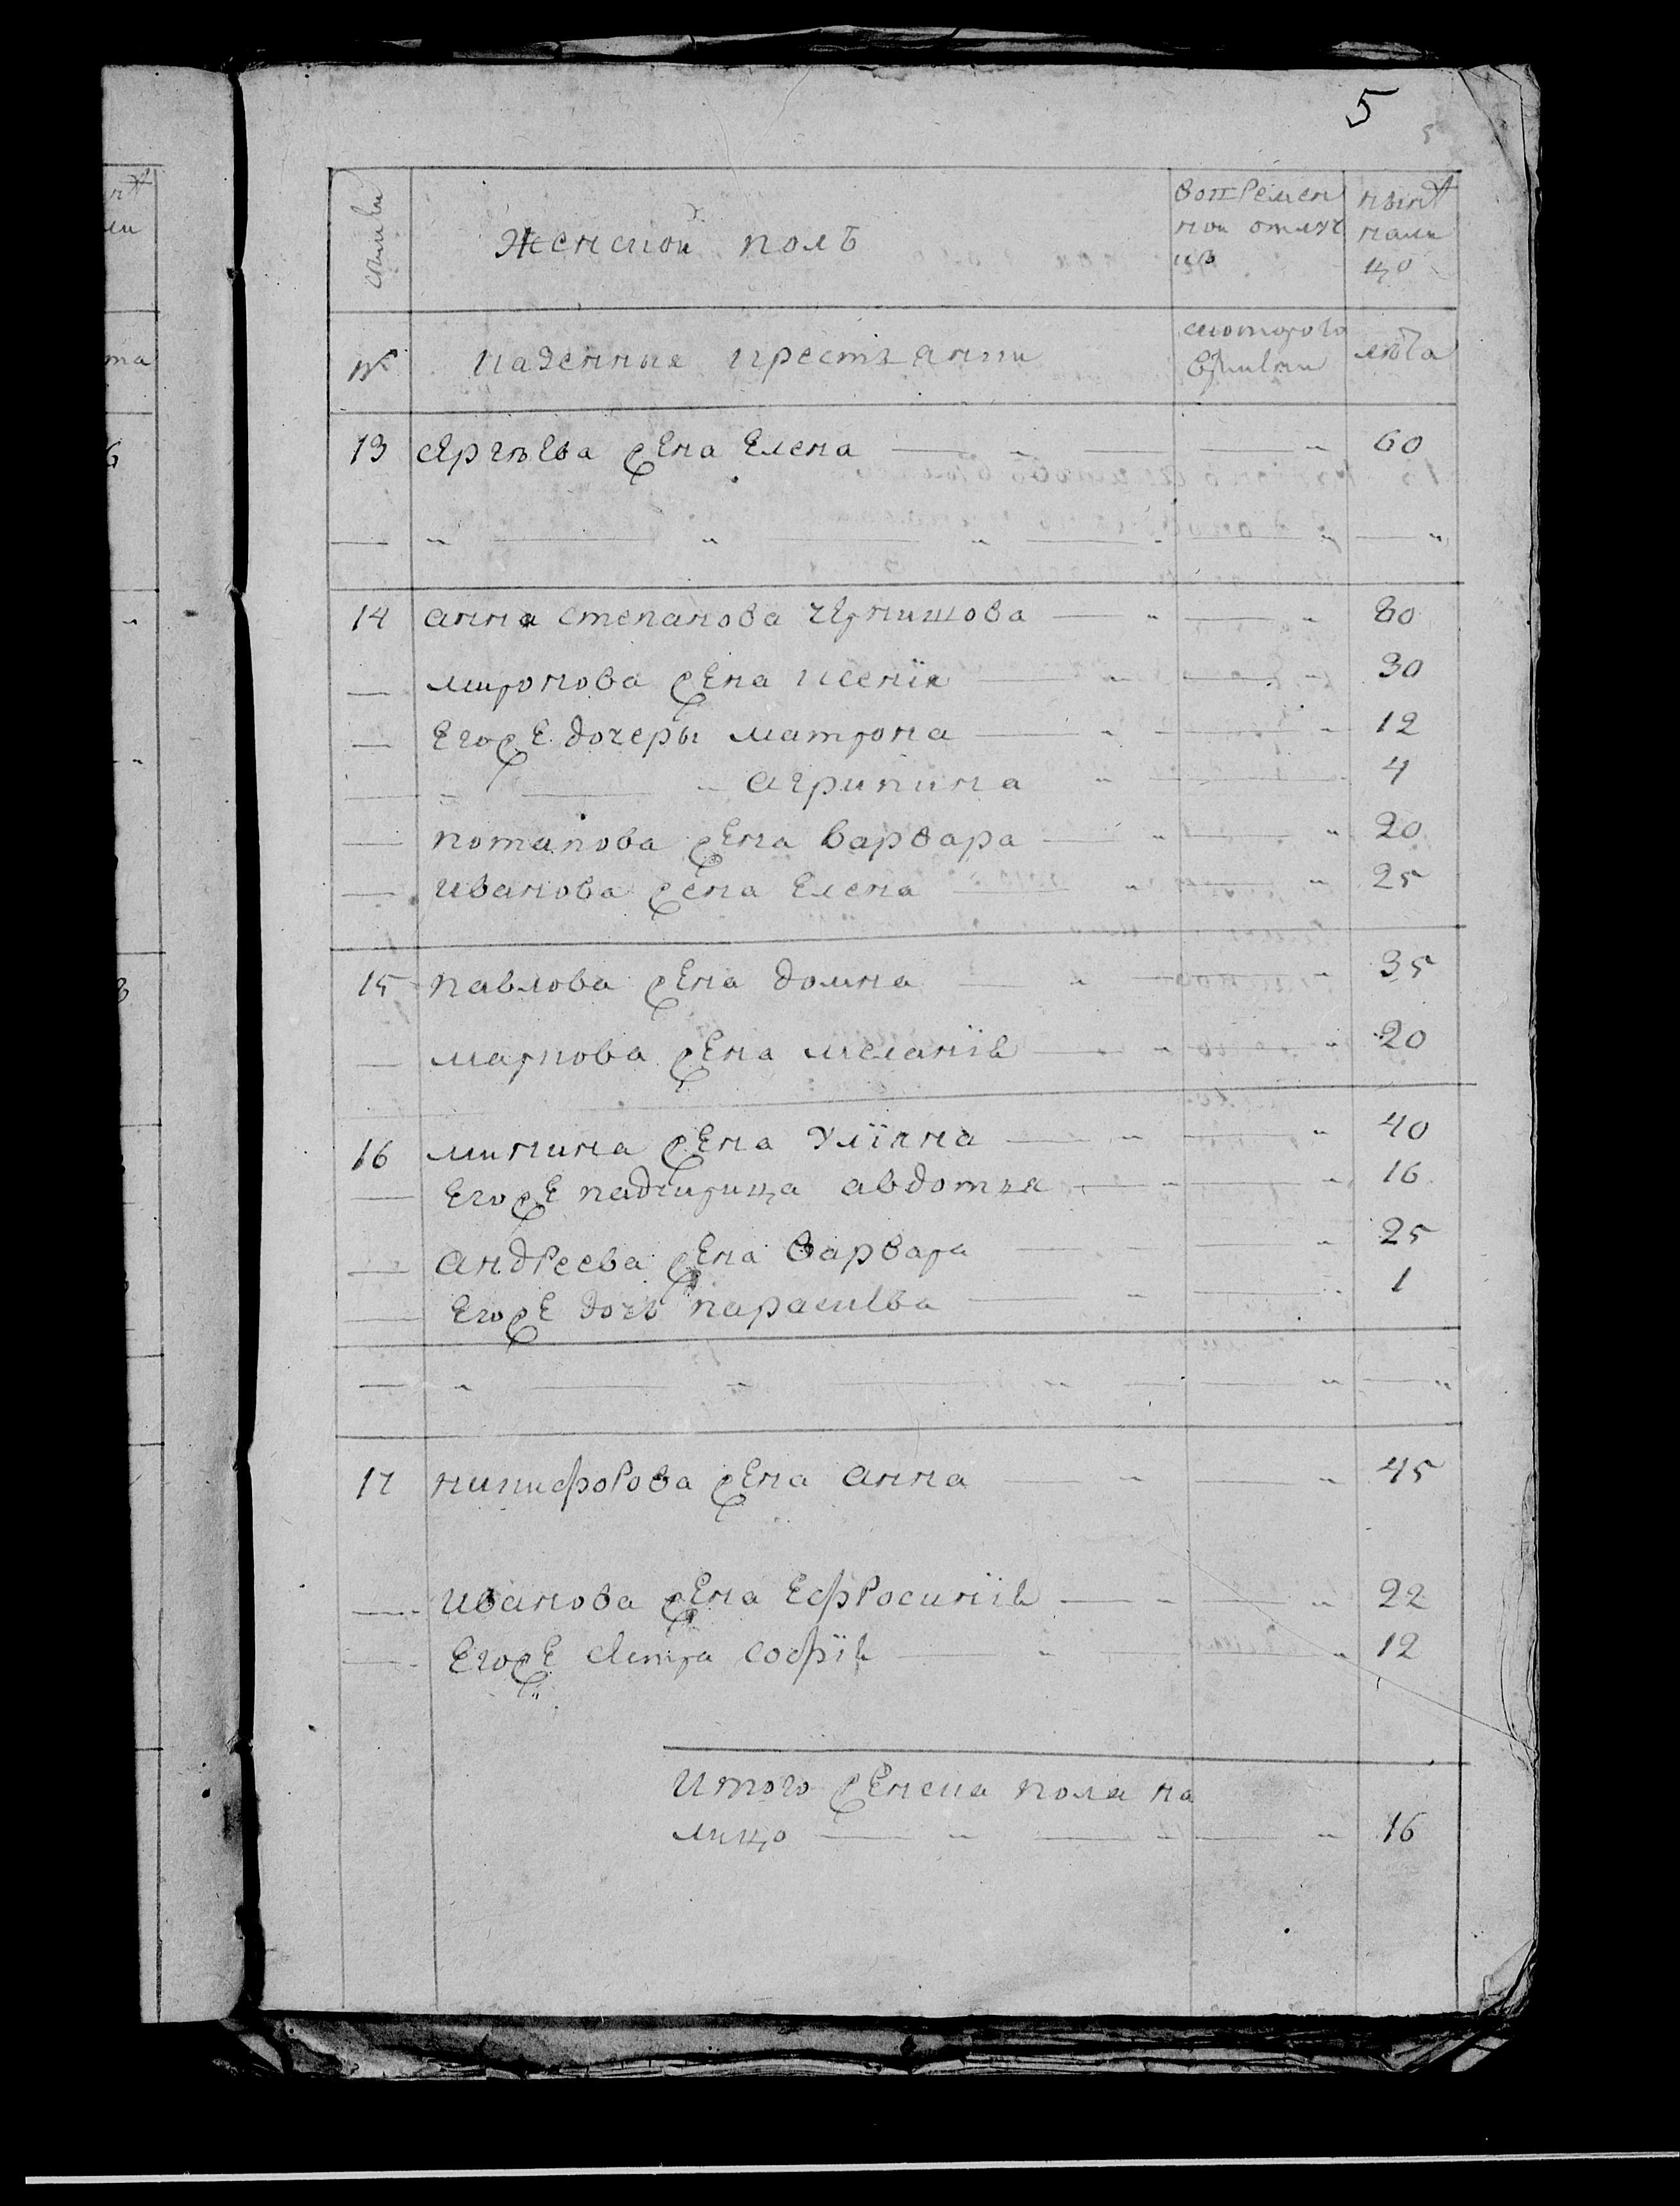 5
5
семьи
Женской полъ
во временной отлучкѣ
нынѣ на лицо
№
казенныя крестьянки
с котораго времени
лѣта
13 сергѣева жена Елена — 60
14 анна степанова чернышова — 80
миронова жена ксенiя — 30
Егоже дочеры матрона — 12
агрипина — 4
потапова жена варвара — 20
иванова жена Елена — 25
15 павлова жена домна — 35
маркова жена меланiя — 20
16 минина жена улiяна — 40
Егоже падчирица авдотья — 16
андреева жена варвара — 25
Егоже дочь параскева — 1
17 никифорова жена анна — 45
иванова жена Ефросинiя — 22
Егоже сестра софiя — 12
Итого женска пола на
лицо — 16